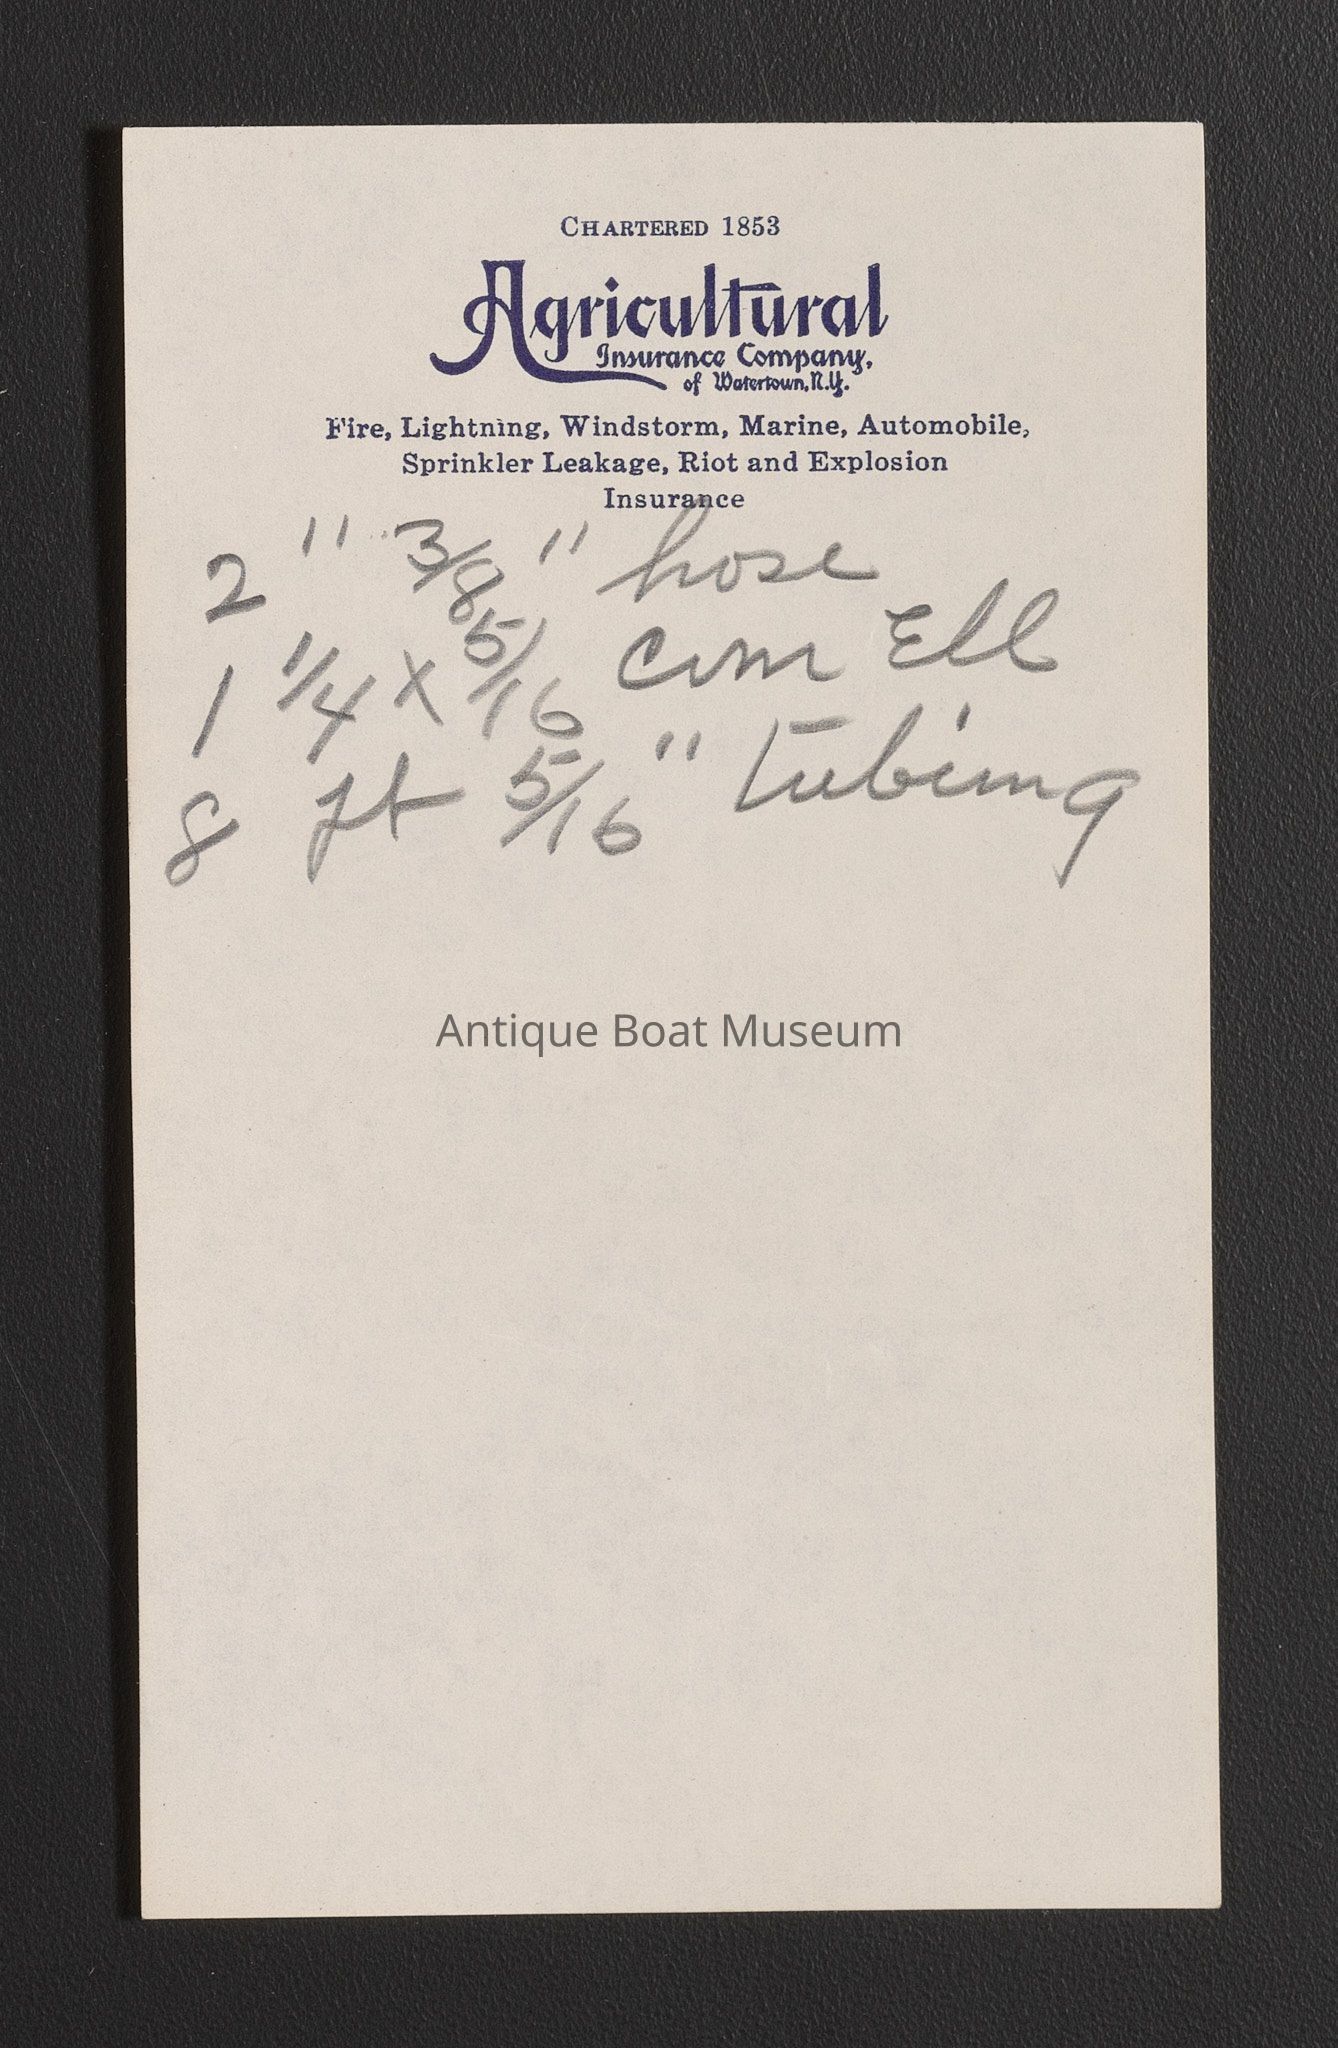 CHARTERED 1853
Agricultural
Insurance Company,
of Watertown, N.Y.
Fire, Lightning, Windstorm, Marine, Automobile,
Sprinkler Leakage, Riot and Explosion
Insurance
2 " 3/8 " hose
1 1/4 x 5/16 com Ell
8 ft 5/16 " tubing
Antique Boat Museum